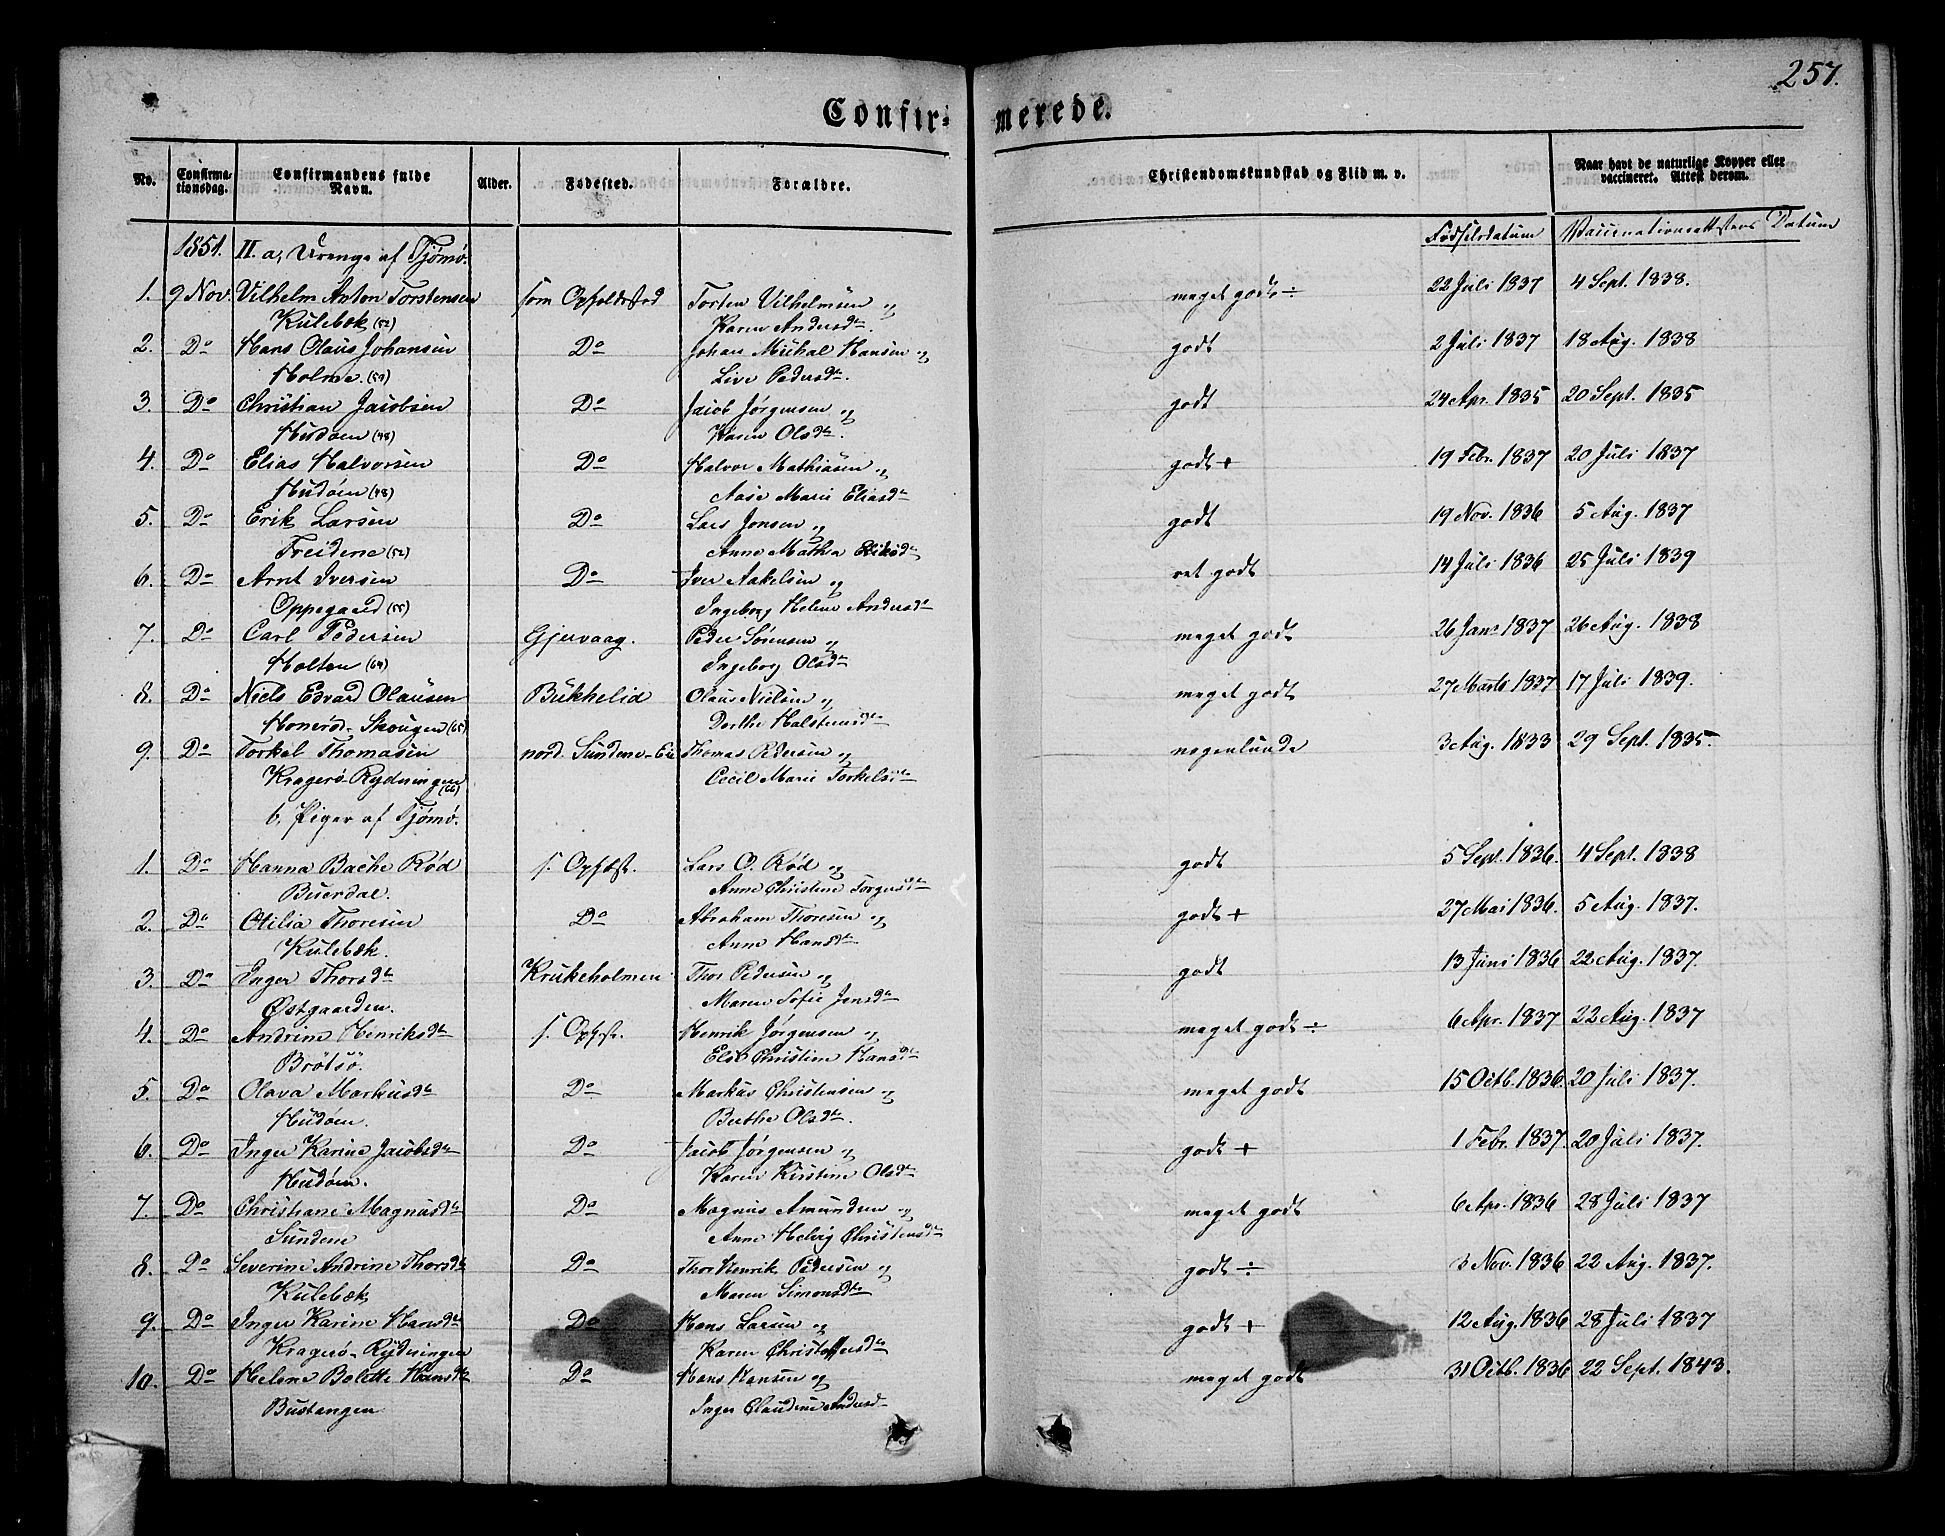 257.
Confir- merede.
No. Confirma- tionsdag. Confirmandens fulde Navn. Alder. Fødested. Forældre. Christendomskundskab og Flid m. v. Naar havt de naturlige Kopper eller vaccineret. Attest derom.
1851. II. a, Drenge af Tjømø. Fødselsdatum Vaccinationsattestens Datum
1. 9 Nov. Vilhelm Anton Torstensen som Opholdssted Torsten Vilhelmsen og meget godt ÷ 22 Juli 1837 4 Sept. 1838.
Kulebæk (52) Karen Andersdtr.
2. Do Hans Olaus Johansen Do Johan Mickal Hansen og godt 2 Juli 1837 18 Aug. 1838
Holme. (54) Live Pedersdtr.
3. Do Christian Jacobsen Do Jacob Jørgensen og godt 24 Apr. 1835 20 Sept. 1835
Hudøen (48) Karen Olsdtr.
4. Do Elias Halvorsen Do Halvor Mathiasen og godt + 19 Febr. 1837 20 Juli 1837
Hudøen (48) Aase Marie Eliasdtr
5. Do Erik Larsen Do Lars Jonsen og godt 19 Nov. 1836 5 Aug. 1837
Treidene (52) Anne Mathea Eriksdtr
6. Do Arnt Iversen Do Iver Axelsen og ret godt 14 Juli 1836 25 Juli 1839
Oppegaard (55) Ingeborg Helene Andersdtr
7. Do Carl Pedersen Gjervaag. Peder Sørensen og meget godt 26 Janr 1837 26 Aug. 1838
Holten (64) Ingeborg Olsdtr
8. Do Niels Edvard Olausen Bukkelid Olaus Nielsen og meget godt 27 Marts 1837 17 Juli 1839.
Honerø-Skougen (65) Dorthe Halstensdtr
9. Do Torkel Thomasen nord. Sundene-Eie Thomas Pedersen og nogenlunde 3 Aug. 1833 29 Sept. 1835.
Kragerø-Rydningen (66) Cecil Marie Torkelsdtr
b, Piger af Tjømø.
1. Do Hanna Bache Rød s. Opholdst. Lars O. Rød og godt 5 Sept. 1836. 4 Sept. 1838
Buerdal. Anne Christine Torgersdtr
2. Do Otilia Thoresen Do Abraham Thoresen og godt + 27 Mai 1836. 5 Aug. 1837.
Kulebæk. Anne Hansdtr
3. Do Inger Thorsdtr Krukeholmen Thor Pedersen og godt 13 Juni 1836 22 Aug. 1837.
Østgaarden. Maren Sofie Jensdtr
4. Do Andrine Henriksdtr s. Opst. Henrik Jørgensen og meget godt ÷ 6 Apr. 1837 22 Aug. 1837
Brøtsø. Else Christine Hansdtr
5. Do Olava Markusdtr Do Markus Christensen og meget godt 15 Octb. 1836. 20 Juli 1837.
Hudøen. Berthe Olsdtr
6. Do Inger Karine Jacobsdtr Do Jacob Jørgensen og godt + 1 Febr. 1837. 20 Juli 1837.
Hudøen. Karen Kirstine Olsdtr
7. Do Christiane Magnusdtr Do Magnus Amundsen og meget godt 6 Apr. 1836 28 Juli 1837
Sundene Anne Helvig Christensdtr
8. Do Severine Andrine Thorsdtr Do Thor Henrik Pedersen og godt ÷ 3 Nov. 1836 22 Aug. 1837.
Kulebæk Maren Simonsdtr
9. Do Inger Karine Hansdtr Do Hans Larsen og godt + 12 Aug. 1836 28 Juli 1837
Kragerø-Rydningen Karen Christoffersdtr
10. Do Helene Bolette Hansdtr Do Hans Hansen og meget godt 31 Octb. 1836 22 Sept. 1843.
Bustangen Inger Claudine Andersd